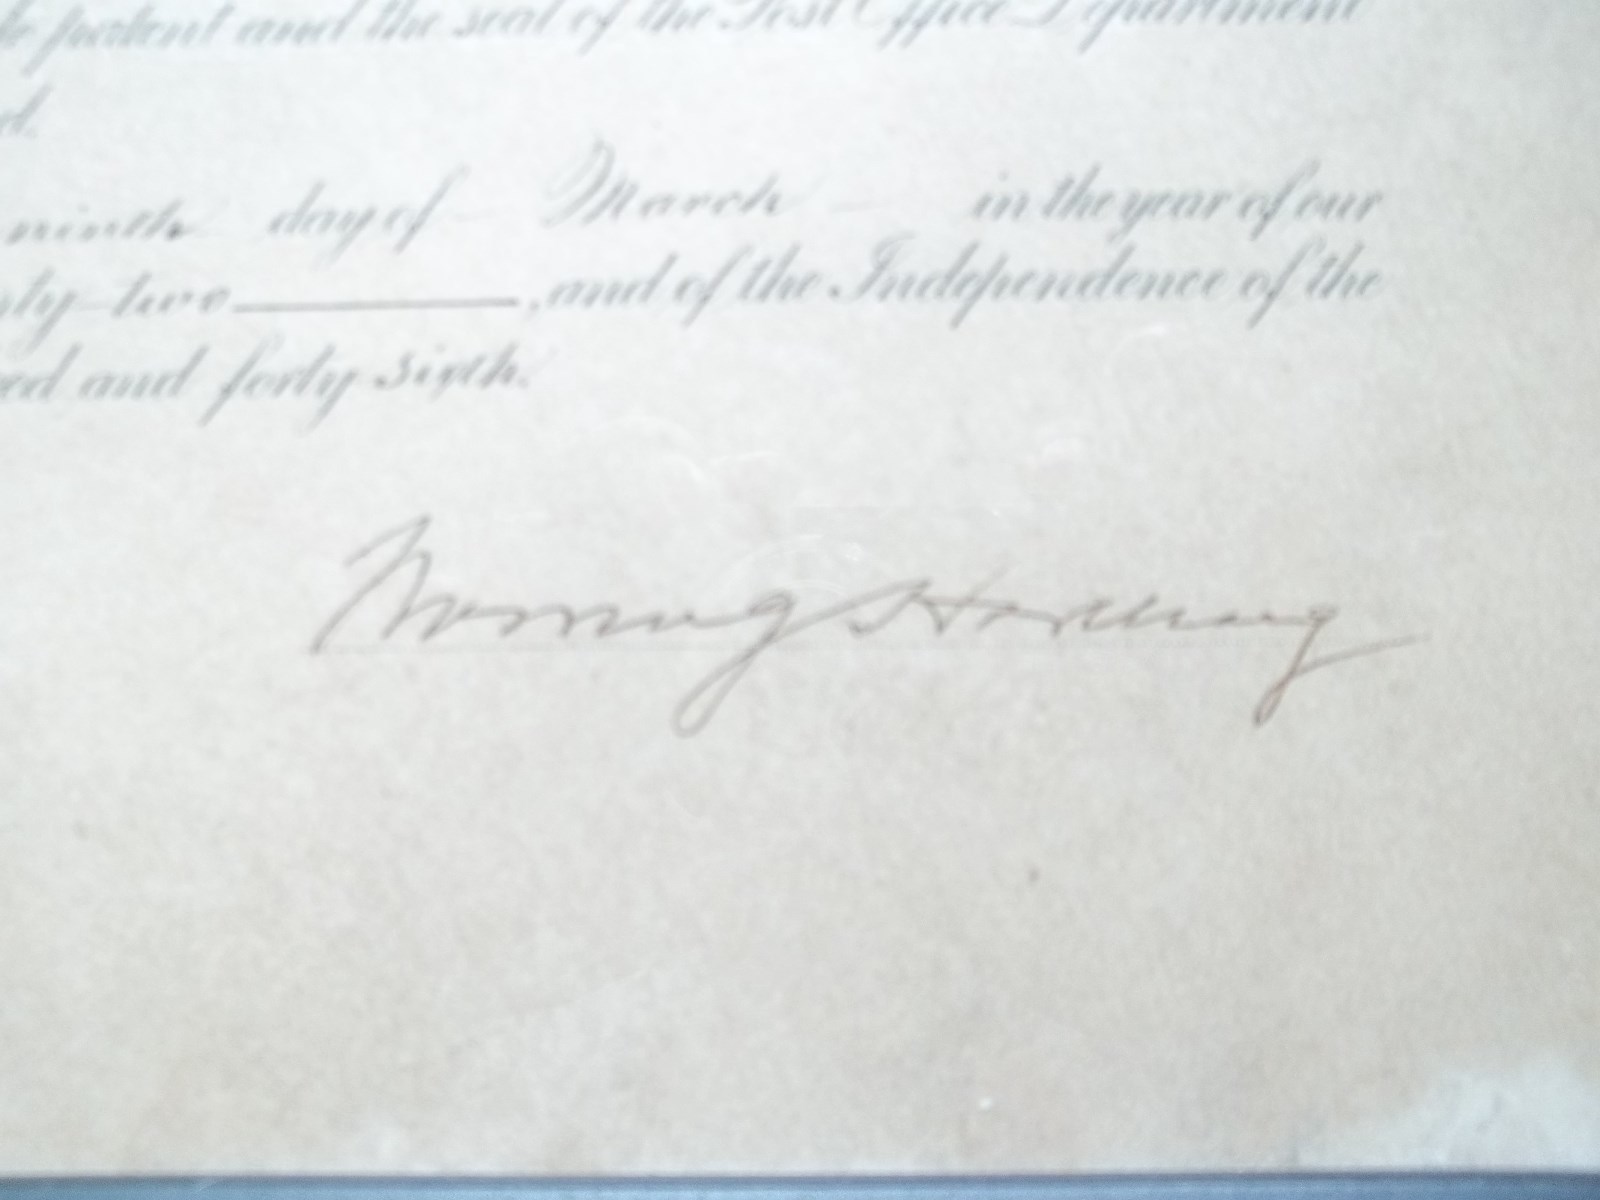 patent and the seal of the Post Office Department
d.
ninth day of March in the year of our
ty-two, and of the Independence of the
ed and forty sixth.
Warren G Harding